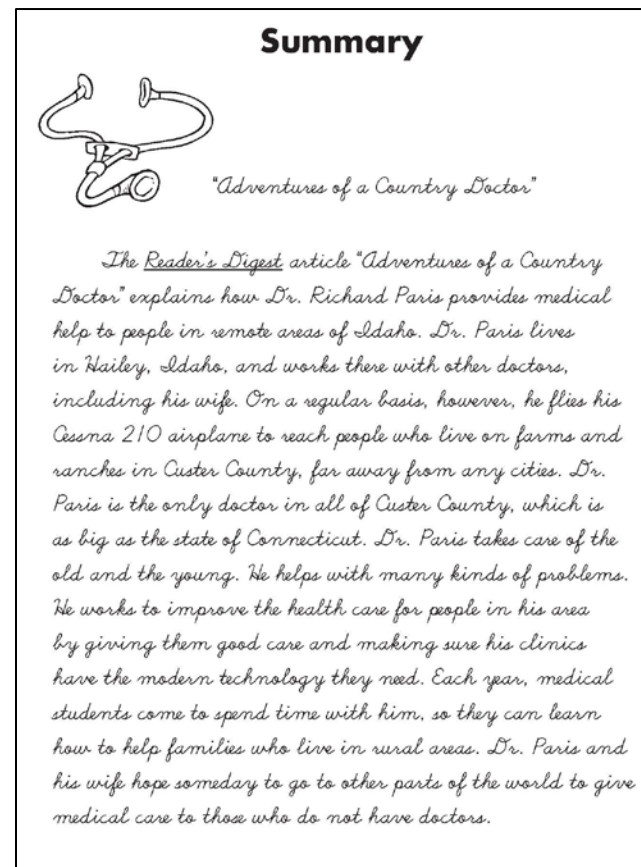 Summary
"Adventures of a Country Doctor"
The Reader's Digest article "Adventures of a Country
Doctor" explains how Dr. Richard Paris provides medical
help to people in remote areas of Idaho. Dr. Paris lives
in Hailey, Idaho, and works there with other doctors,
including his wife. On a regular basis, however, he flies his
Cessna 210 airplane to reach people who live on farms and
ranches in Custer County, far away from any cities. Dr.
Paris is the only doctor in all of Custer County, which is
as big as the state of Connecticut. Dr. Paris takes care of the
old and the young. He helps with many kinds of problems.
He works to improve the health care for people in his area
by giving them good care and making sure his clinics
have the modern technology they need. Each year, medical
students come to spend time with him, so they can learn
how to help families who live in rural areas. Dr. Paris and
his wife hope someday to go to other parts of the world to give
medical care to those who do not have doctors.